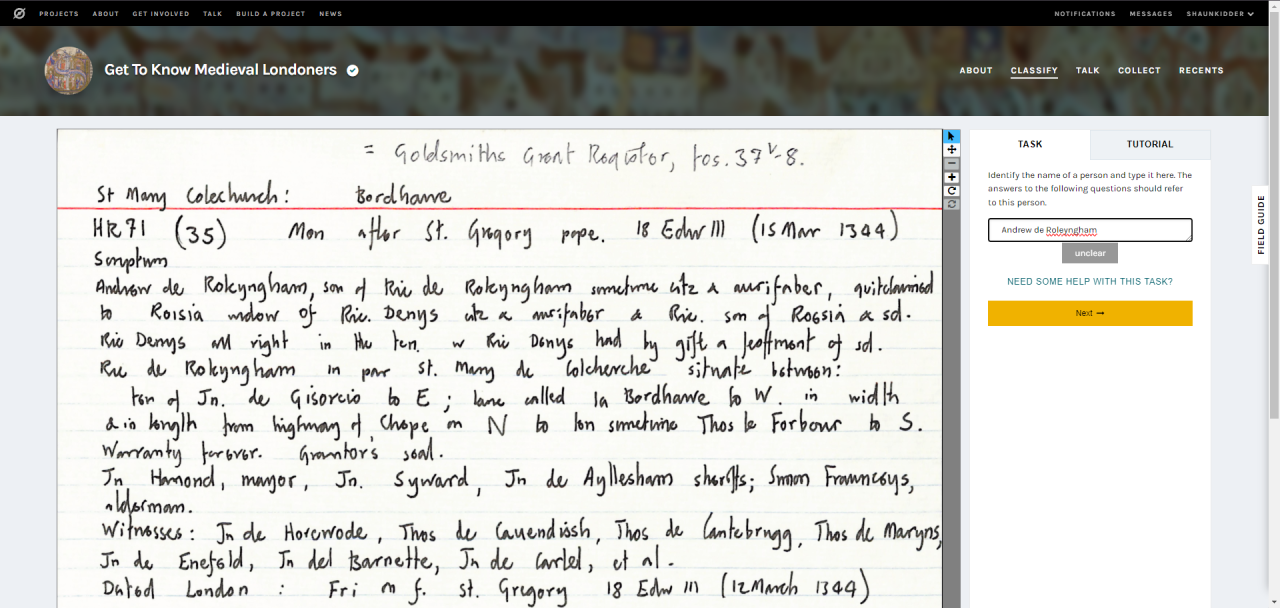 PROJECTS ABOUT GET INVOLVED TALK BUILD A PROJECT NEWS NOTIFICATIONS MESSAGES SHAUNKIDDER
Get To Know Medieval Londoners ABOUT CLASSIFY TALK COLLECT RECENTS
= Goldsmiths Grant Register, fos. 37v-8.
St Mary Colechurch: Bordhawe
HR 71 (35) Mon after St. Gregory pope. 18 Edw III (15 Mar 1344)
Scriptum
Andrew de Rokeyngham, son of Ric de Rokeyngham sometime citz & aurifaber, quitclaimed
to Roisia widow of Ric. Denys citz & aurifaber & Ric. son of Roesia & sd.
Ric Denys all right in the ten. w Ric Denys had by gift & feoffment of sd.
Ric de Rokeyngham in par St. Mary de Colcherche situate between:
ten of Jn. de Gisorcio to E; lane called la Bordhawe to W. in width
& in length from highway of Chepe on N to ten sometime Thos le Forbour to S.
Warranty forever. Grantor's seal.
Jn Hamond, mayor, Jn. Syward, Jn de Ayllesham sheriffs; Simon Fraunceys,
alderman.
Witnesses: Jn de Horewode, Thos de Cauendissh, Thos de Cantebrugg, Thos de Maryns,
Jn de Enefeld, Jn del Barnette, Jn de Cartel, et al.
Dated London: Fri in f. St. Gregory 18 Edw III (12 March 1344)
TASK TUTORIAL
Identify the name of a person and type it here. The
answers to the following questions should refer
to this person.
Andrew de Roleyngham
unclear
NEED SOME HELP WITH THIS TASK?
Next →
FIELD GUIDE